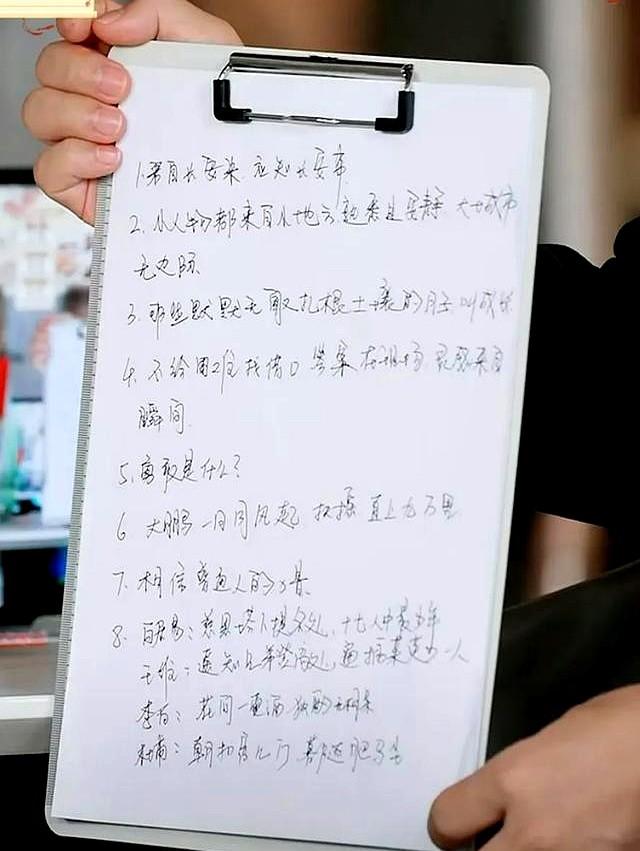 1.若有长安策 应知长安事
2.小人物都来自小地方 越看过安静 大城市
无边际
3.那些默默无闻扎根土壤的日子 叫成长
4.不给困难找借口 答案在现场 灵感来自
瞬间
5.离歌是什么?
6 大鹏一日同风起 扶摇直上九万里
7.相信普通人的力量
8.白居易:慈恩塔下题名处,十七人中最少年
王维:遥知兄弟登高处,遍插茱萸少一人
李白:花间一壶酒 独酌无相亲
杜甫:朝扣富儿门 暮随肥马尘